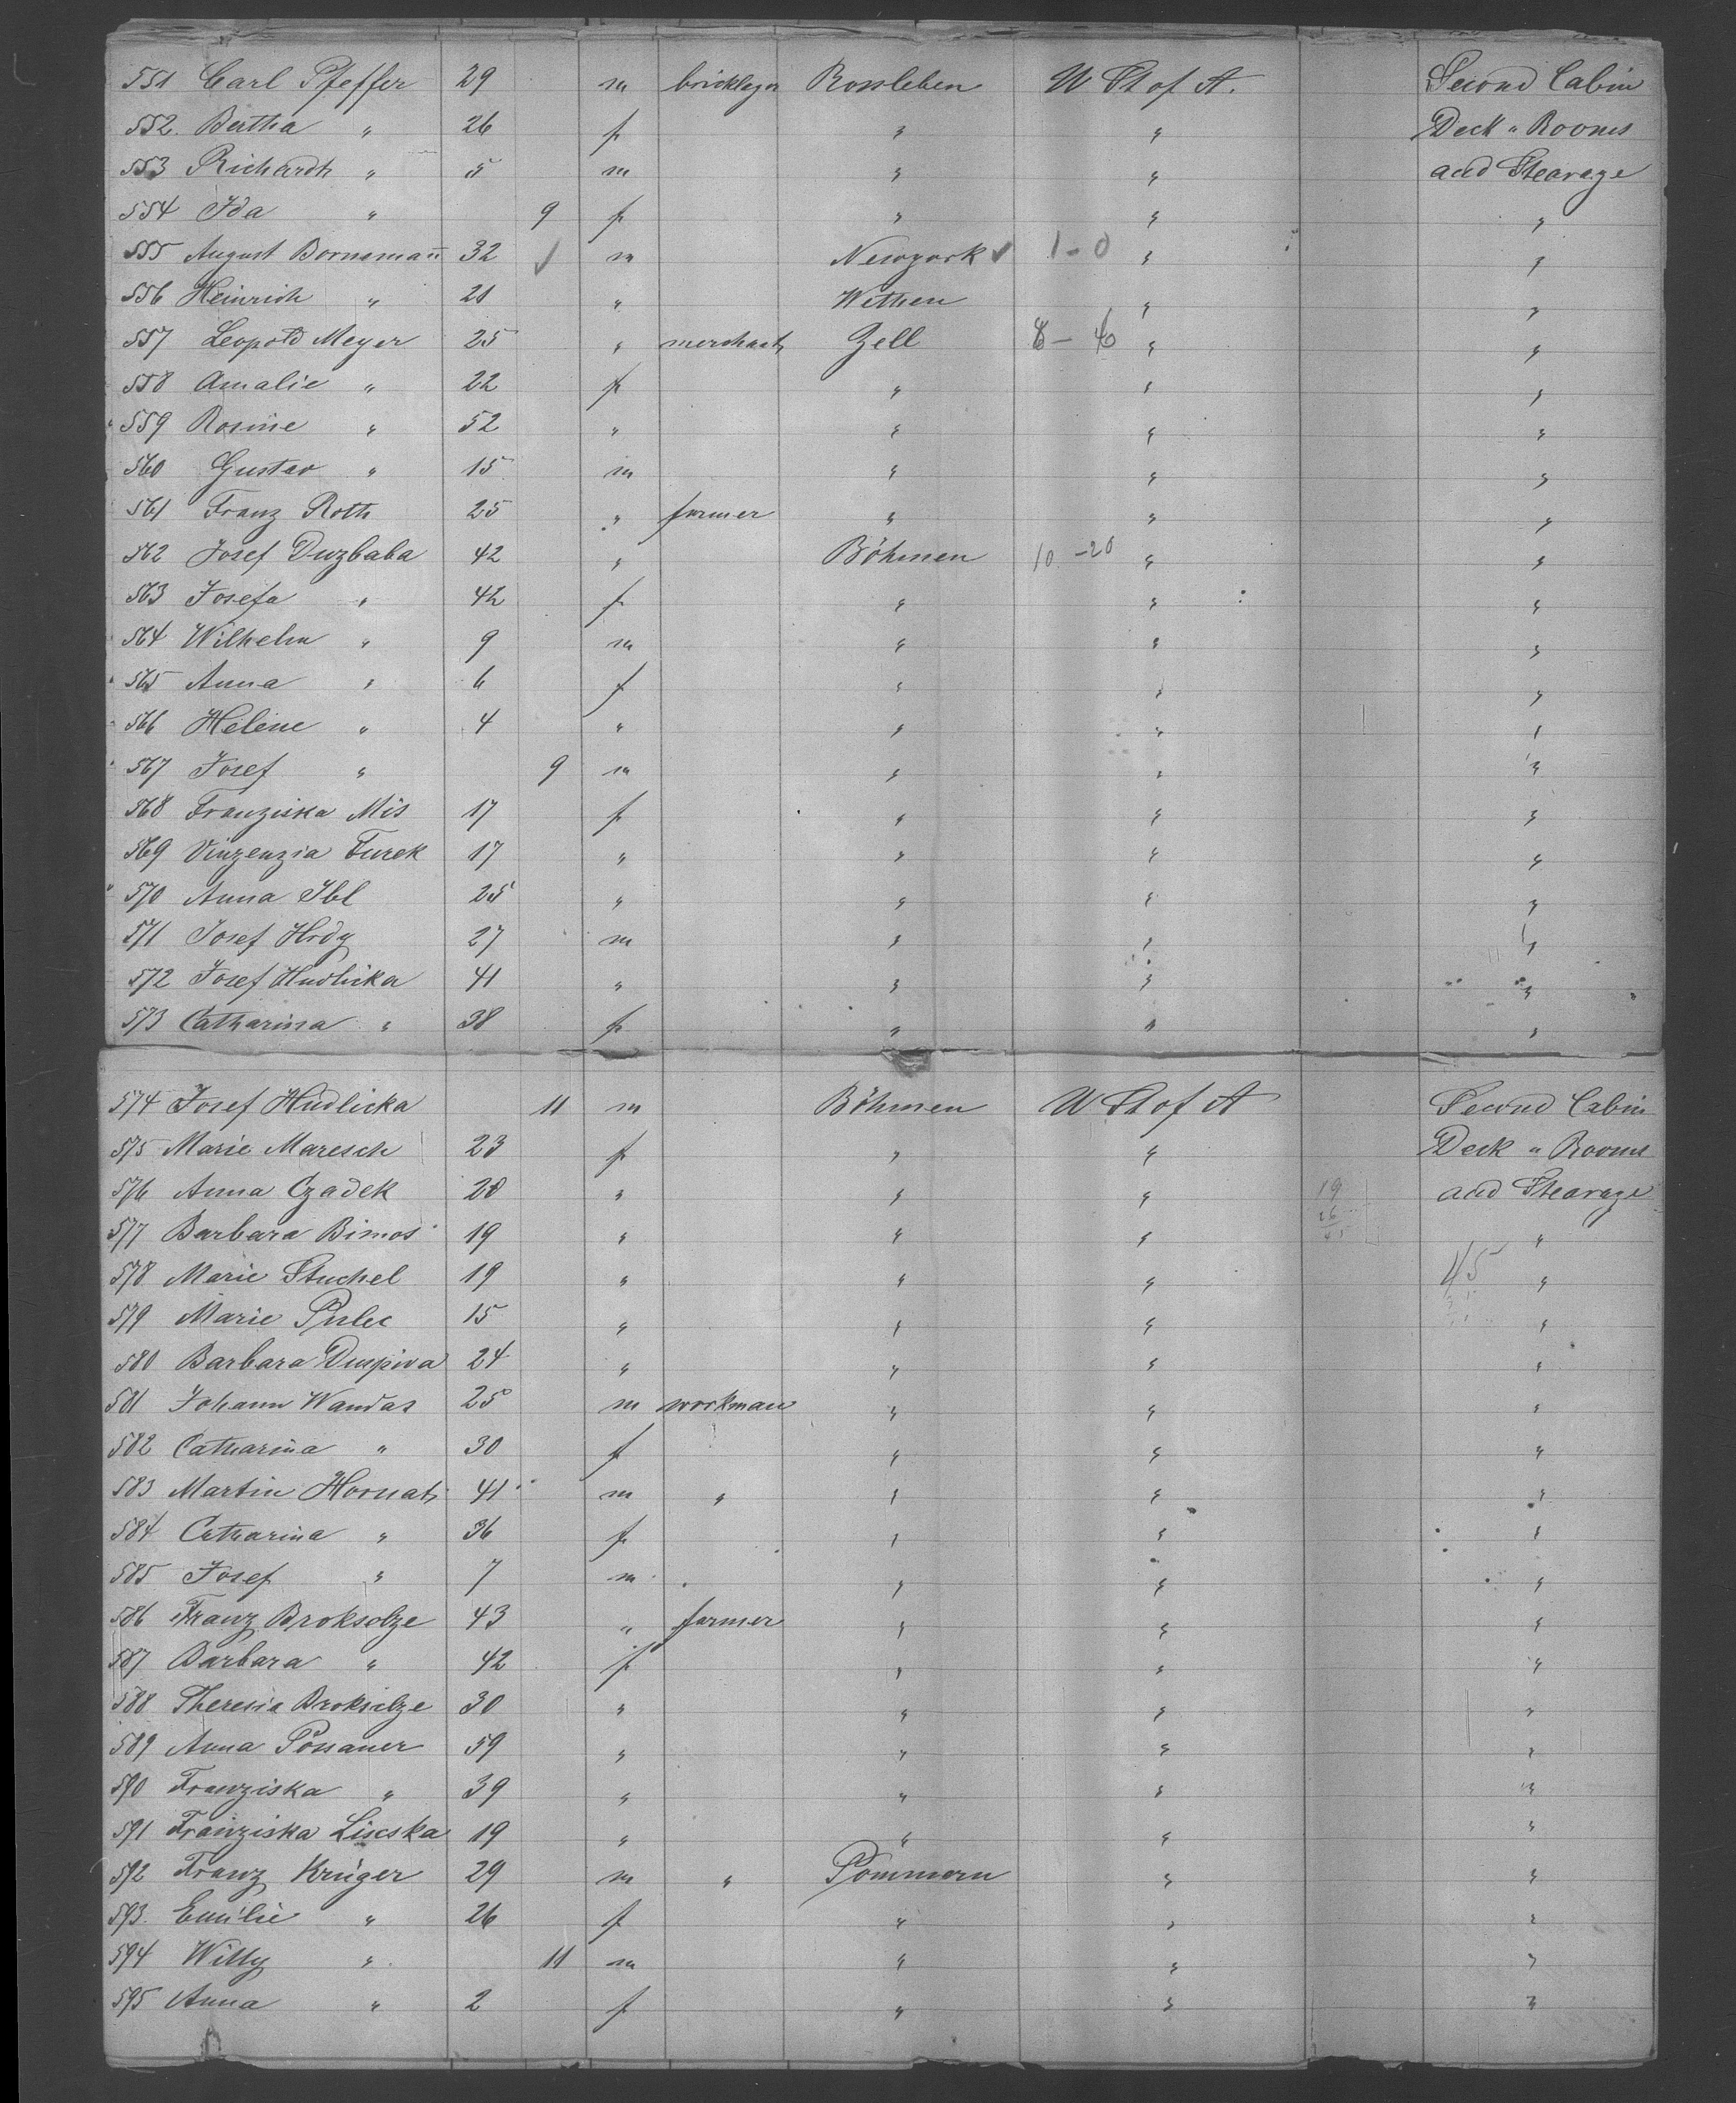 551 Carl Pfeffer 29 m bricklayer Rossleben U St of A. Second Cabin
552 Bertha " 26 f " " Deck " Rooms
553 Richardt " 5 m " " and Stearage
554 Ida " 9 f " " "
555 August Bornemann 32 ✓ m Newyork ✓ 1-0 " "
556 Heinrich " 21 " Wethen " "
557 Leopold Meyer 25 " merchant Zell 8-6 " "
558 Amalie " 22 f " " "
559 Rosine " 52 " " " "
560 Gustav " 15 m " " "
561 Franz Roth 25 " farmer " " "
562 Josef Duzbaba 42 " Böhmen 10-20 " "
563 Josefa " 42 f " " "
564 Wilhelm " 9 m " " "
565 Anna " 6 f " " "
566 Helene " 4 " " " "
567 Josef " 9 m " " "
568 Franziska Mis 17 f " " "
569 Vinzenzia Turek 17 " " " "
570 Anna Ibl 25 " " " "
571 Josef Hrdy 27 m " " "
572 Josef Hudlicka 41 " " " "
573 Catharina " 38 f " " "
574 Josef Hudlicka 11 m Böhmen U St of A Second Cabin
575 Marie Maresch 23 f " " Deck " Rooms
576 Anna Czadek 20 " " " 19 and Stearage
577 Barbara Bimos 19 " " " 26 45 "
578 Marie Stuchel 19 " " " 45 "
579 Marie Pulec 15 " " " "
580 Barbara Duspiva 24 " " " "
581 Johann Wandas 25 m workman " " "
582 Catharina " 30 f " " "
583 Martin Hornat 41 m " " " "
584 Catharina " 36 f " " "
585 Josef " 7 m " " "
586 Franz Broksolze 43 " farmer " " "
587 Barbara " 42 f " " "
588 Theresia Broksolze 30 " " " "
589 Anna Possaner 59 " " " "
590 Franziska " 39 " " " "
591 Franziska Liscska 19 " " " "
592 Franz Krüger 29 m " Pommern " "
593 Emilie " 26 f " " "
594 Willy " 11 m " " "
595 Anna " 2 f " " "